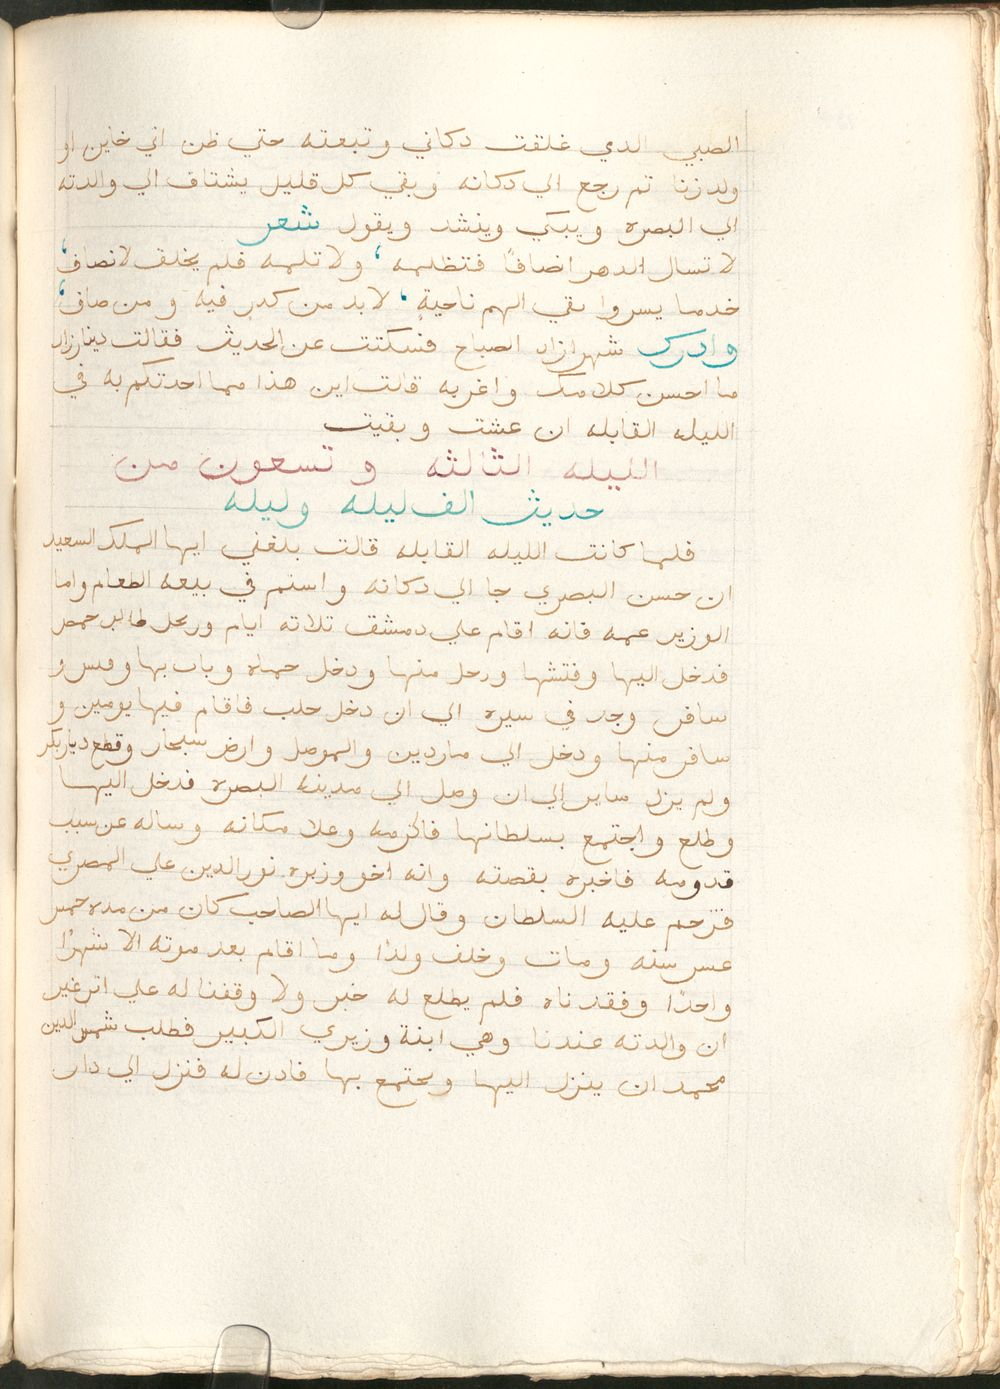 الصبي الدي غلقت دكاني وتبعته حتي ظن اني خاين او
ولد زنا تم رجع الي دكانه وبقي كل قليل يشتاق الي والدته
الي البصره ويبكي وينشد ويقول شعر
لا تسال الدهر انصافًا فتظلمه ، ولا تلمه فلم يخلق لانصاف ،
خد ما يسروا بقي الهم ناحيةٍ ، لا بد من كدرٍ فيه ومن صاف ،
وادرك شهرازاد الصباح فسكتت عن الحديث فقالت دينارزاد
ما احسن كلامك واغربه قالت اين هذا مما احدتكم به في
الليله القابله ان عشت وبقيت
الليله الثالثه وتسعون من
حديث الف ليله وليله
فلما كانت الليله القابله قالت بلغني ايها الملك السعيد
ان حسن البصري جا الي دكانه واستم في بيعه الطعام واما
الوزير عمه فانه اقام علي دمشق تلاته ايام ورحل طالب حمص
فدخل اليها وفتشها ورحل منها ودخل حماه وبات بها وفتس و
سافر وجد في سيره الي ان دخل حلب فاقام فيها يومين و
سافر منها ودخل الي ماردين والموصل وارض سنجار وقطع ديار بكر
ولم يزل ساير الي ان وصل الي مدينه البصره فدخل اليها
وطلع واجتمع بسلطانها فاكرمه وعلا مكانه وساله عن سبب
قدومه فاخبره بقصته وانه اخو وزيره نور الدين علي المصري
فترحم عليه السلطان وقال له ايها الصاحب كان من مده خمس
عسر سنه ومات وخلف ولدًا وما اقام بعد موته الا شهرًا
واحدًا وفقدناه فلم يطلع له خبر ولا وقفنا له علي اتر غير
ان والدته عندنا وهي ابنة وزيري الكبير فطلب شمس الدين
محمد ان ينزل اليها ويجتمع بها فادن له فنزل الي دار